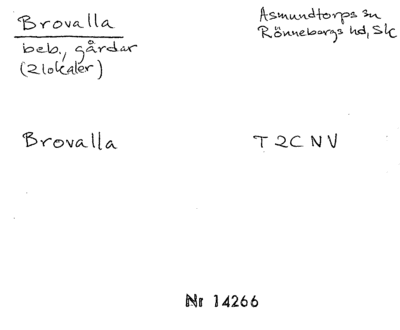 Brovalla
beb., gårdar
(2 lokaler)
Asmundtorps sn
Rönnebergs hd, Sk
Brovalla
T 2C NV
Nr 14266